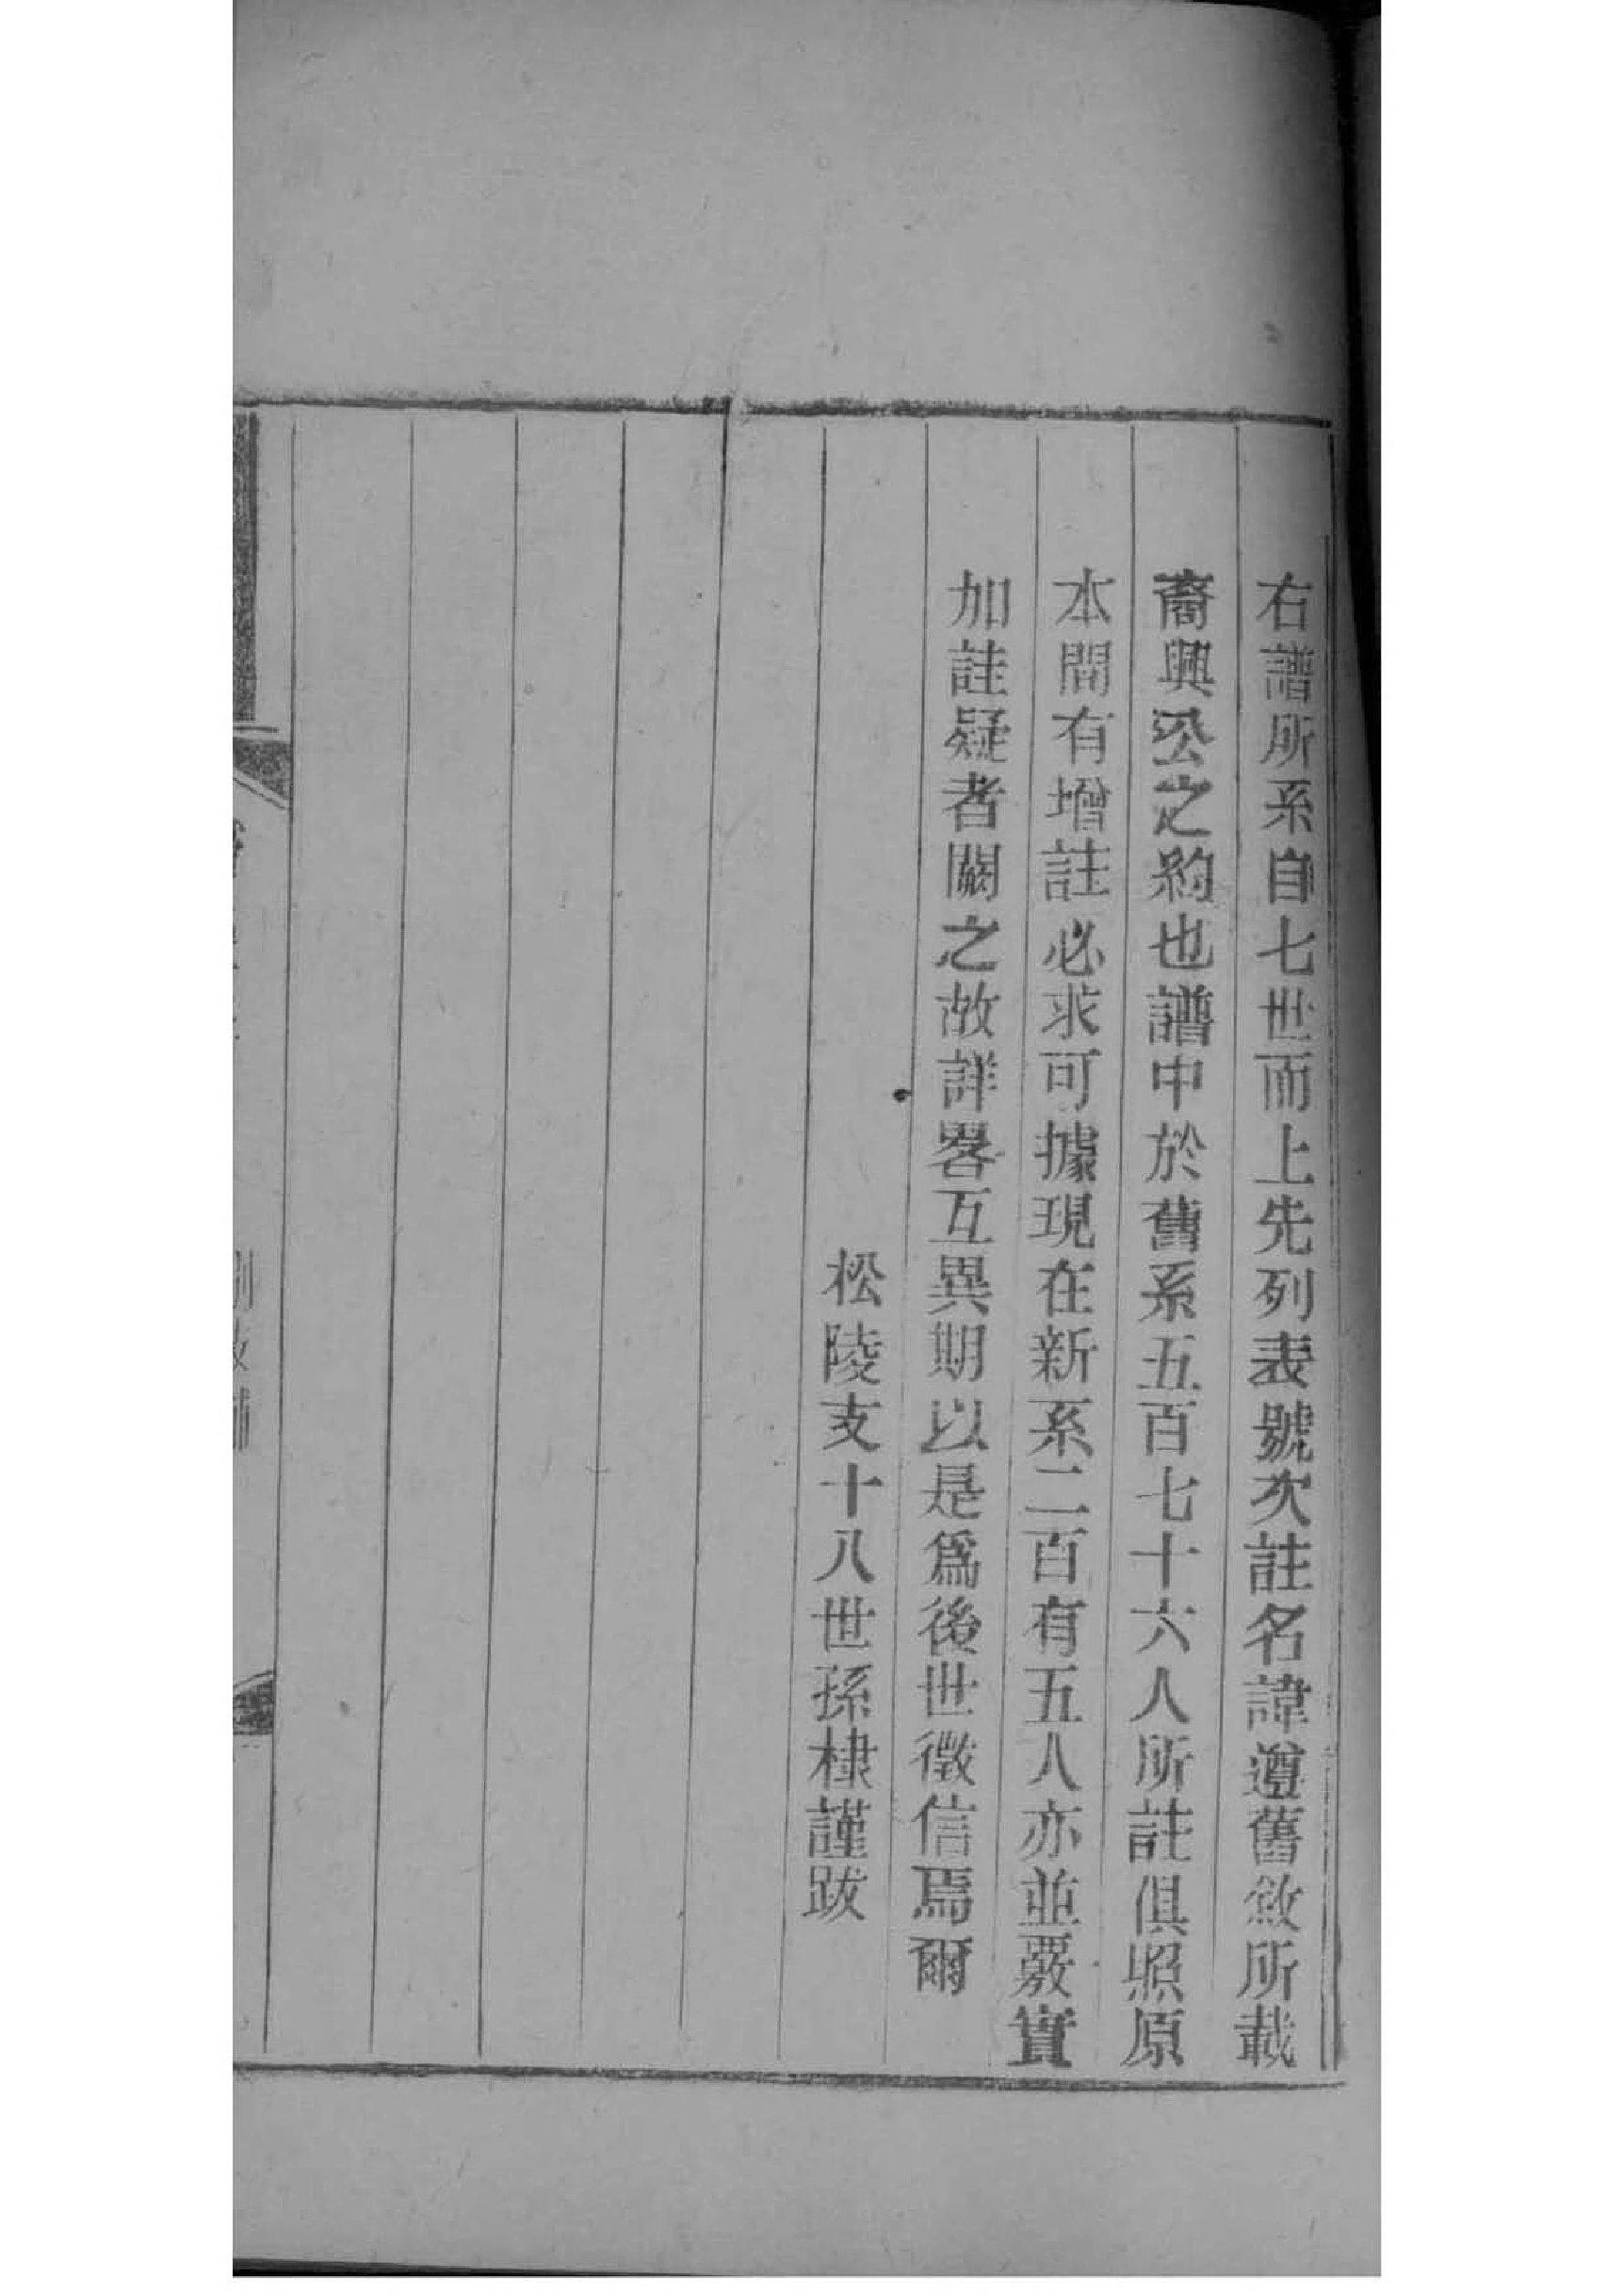 右譜所系自七世而上先列表號次註名諱遵舊敘所載
裔興公之約也譜中於舊系五百七十六人所註俱照原
本間有增註必求可據現在新系二百有五人亦並覈實
加註疑者闕之故詳畧互異期以是爲後世徵信焉爾
松陵支十八世孫棣謹跋